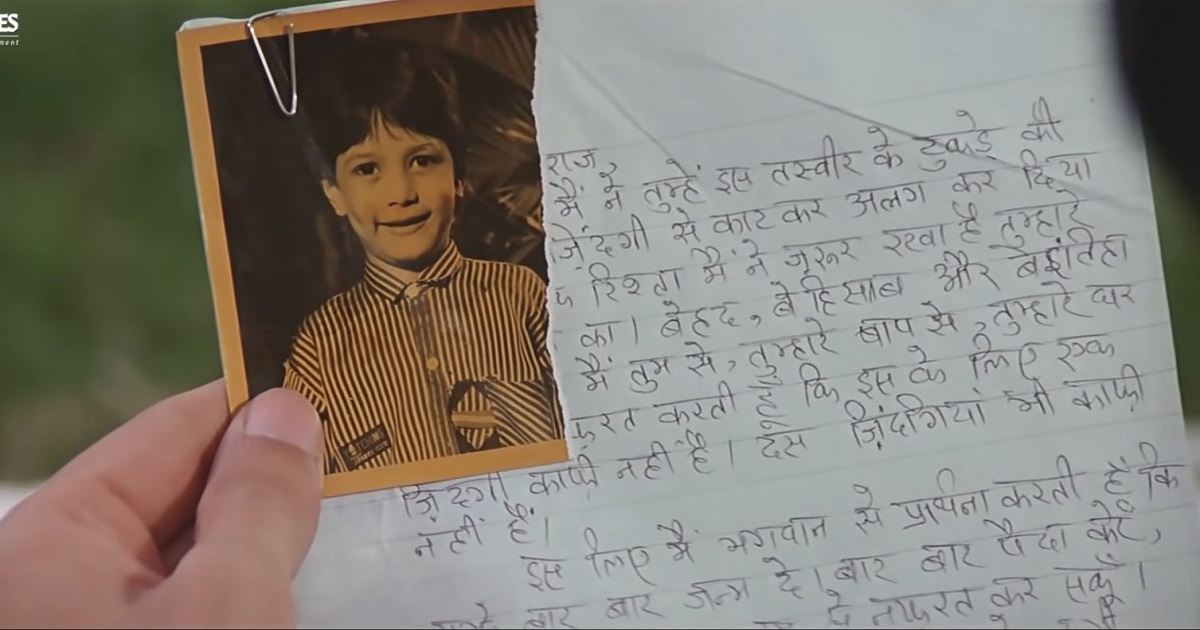 ES
ment
राज,
मैं ने तुम्हें इस तस्वीर के टुकड़े की
ज़िंदगी से काट कर अलग कर दिया
रिश्ता मैं ने ज़रूर रखा है तुम्हारे
का। बेहद, बेहिसाब और बेइंतिहा
मैं तुम से, तुम्हारे बाप से, तुम्हारे घर
फ़रत करती हूँ कि इस के लिए एक
ज़िंदगी काफ़ी नहीं है। दस ज़िंदगियां भी काफ़ी
नहीं हैं।
इस लिए मैं भगवान से प्रार्थना करती हूँ कि
बार बार जन्म दे। बार बार पैदा करे,
नफ़रत कर सकूँ।